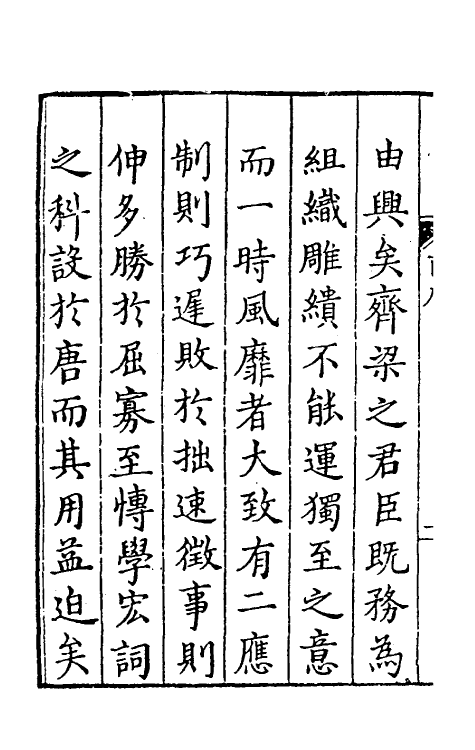 由興矣齊梁之君臣既務為
組織雕繢不能運獨至之意
而一時風靡者大致有二應
制則巧遲敗於拙速徵事則
伸多勝於屈寡至慱學宏詞
之科設於唐而其用益迫矣
二